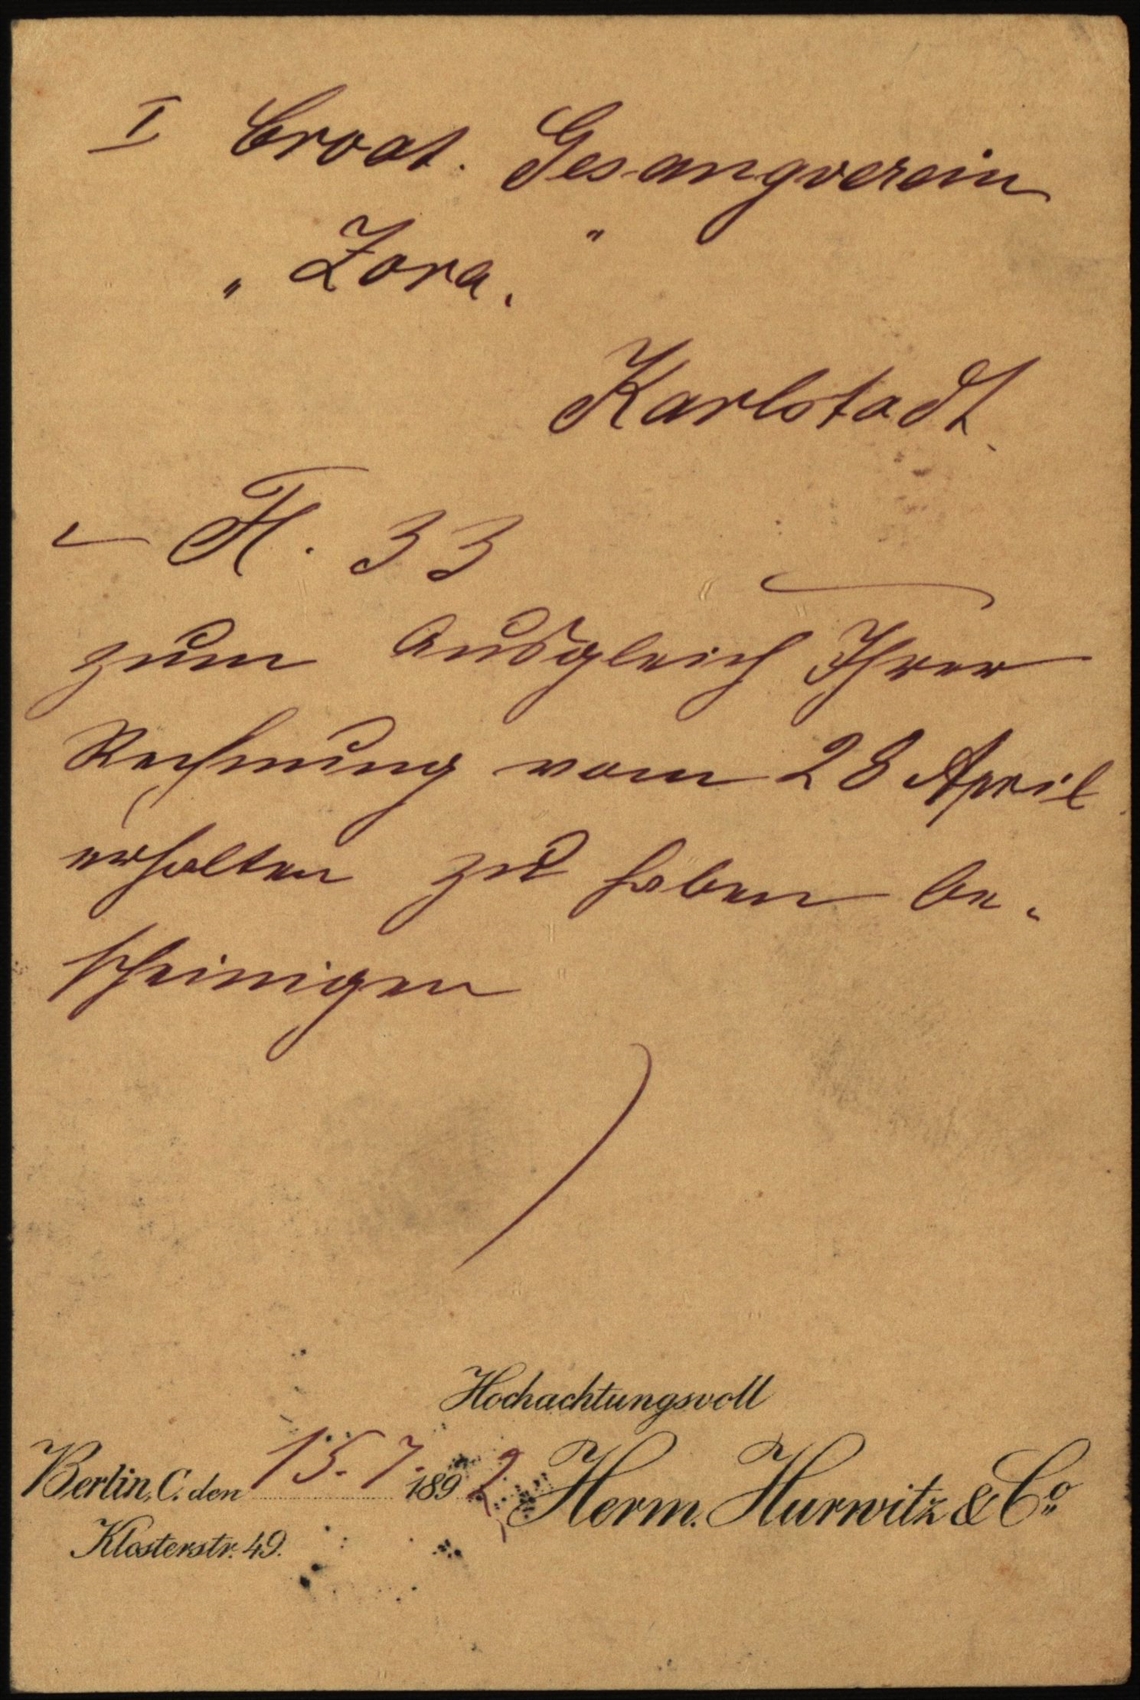 I Croat. Gesangverein
„Zora."
Karlstadt.
Fl. 33
zum Ausgleich Ihrer
Rechnung vom 28 April
erhalten zu haben be-
scheinigen
Hochachtungsvoll
Berlin, C. den 15. 7. 1892 Herm. Hurwitz & Co
Klosterstr. 49.